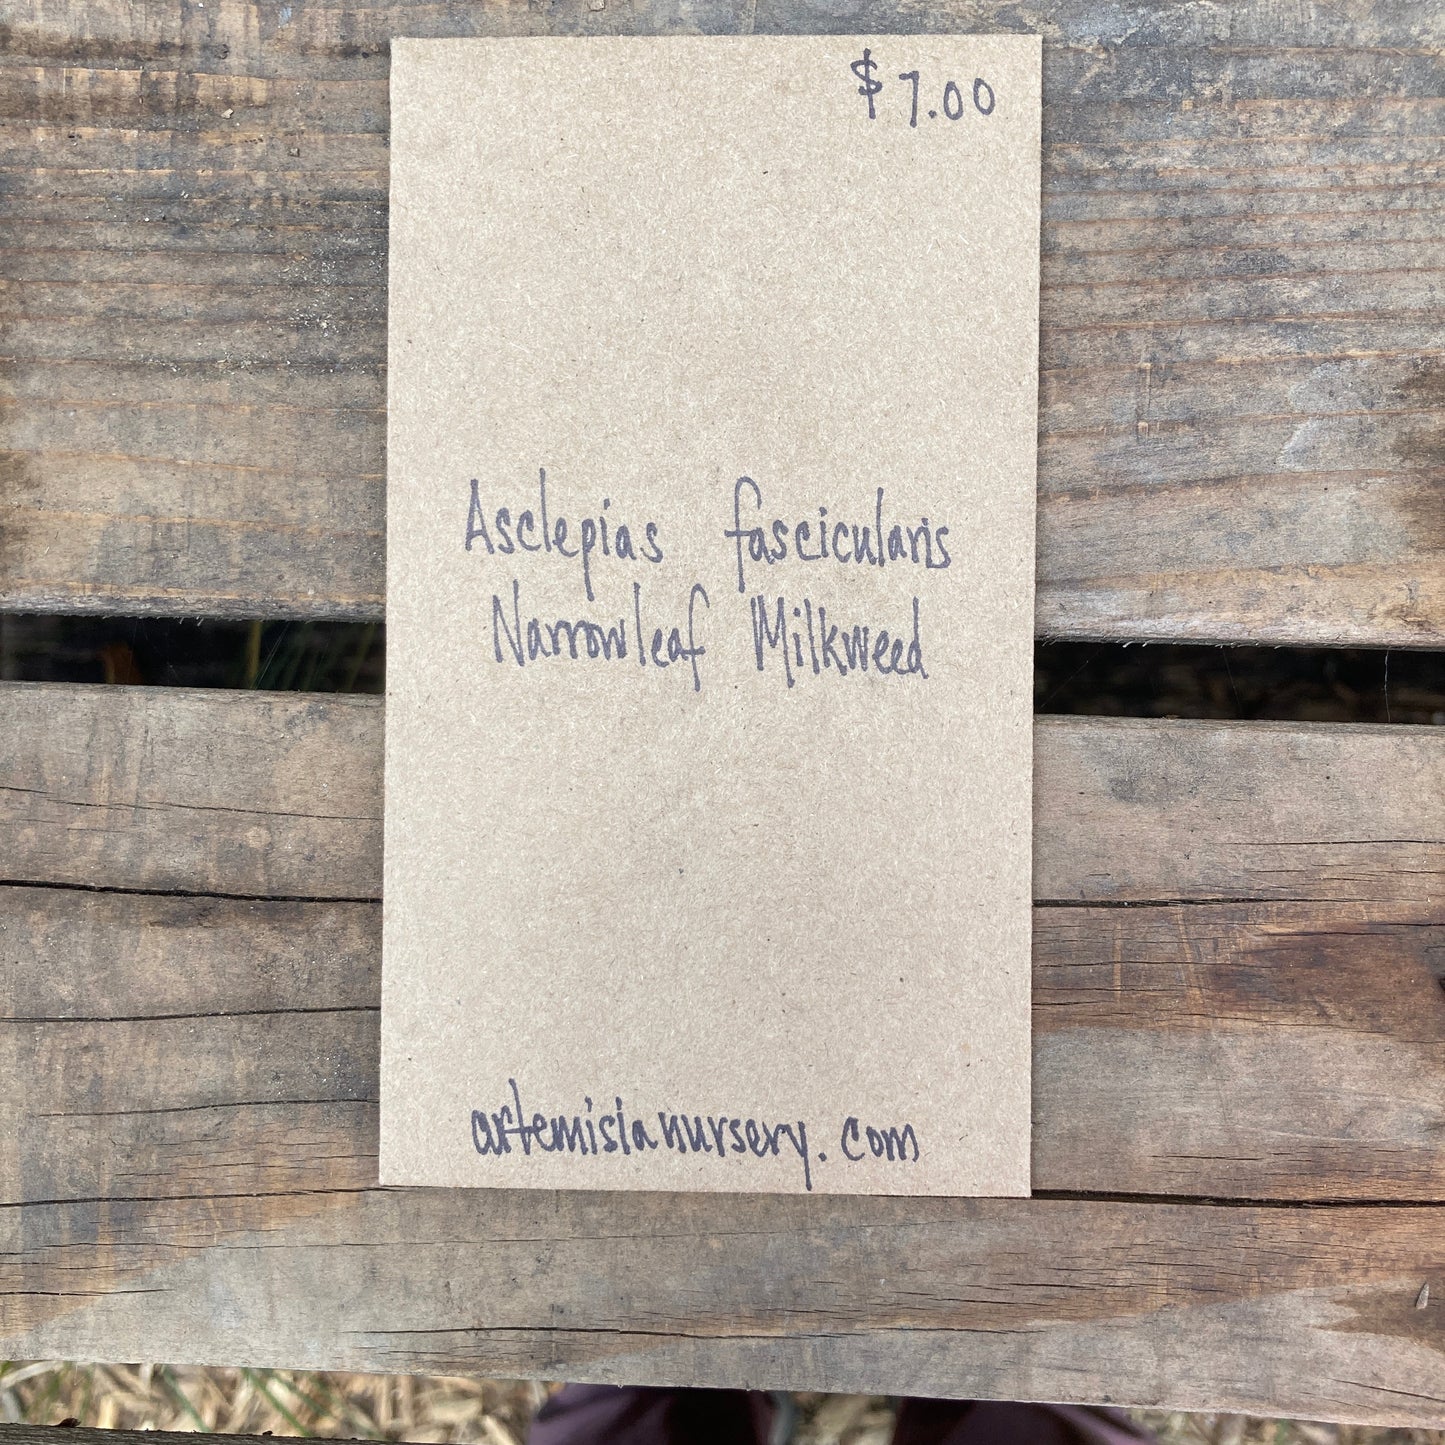 $7.00
Asclepias fascicularis
Narrowleaf Milkweed
artemisianursery.com